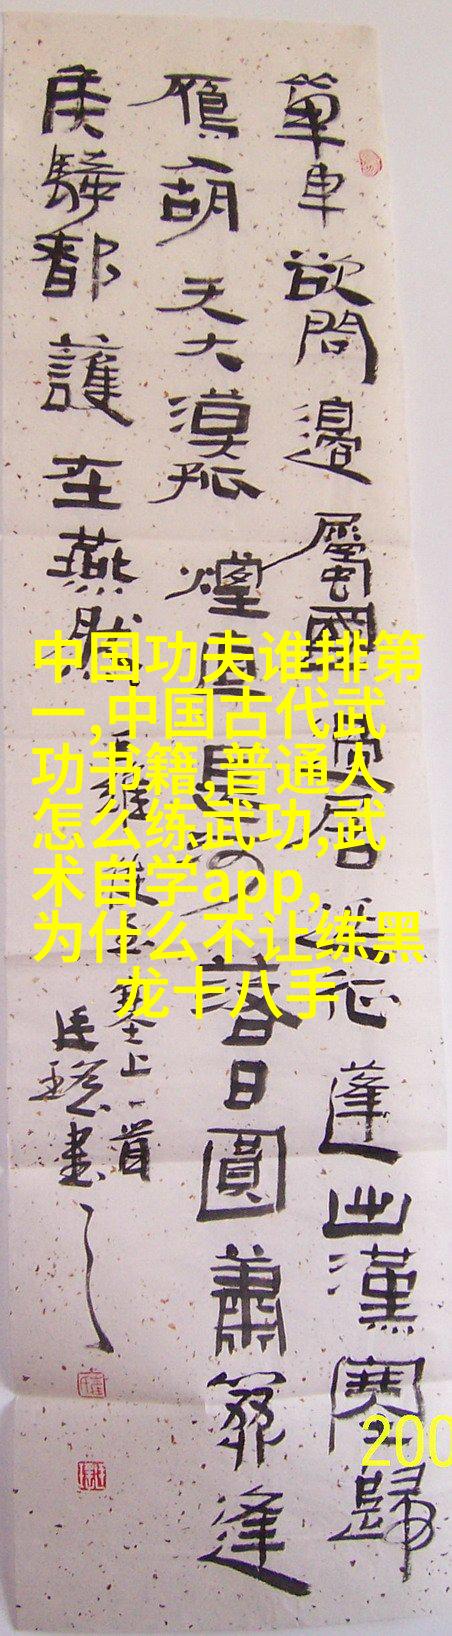 單車欲問邊屬國過居延征蓬出漢塞歸
雁入胡天大漠孤煙直長河落日圓蕭關逢
侯騎都護在燕然
王維使至塞上一首
書
中国功夫谁排第
一,中国古代武
功书籍,普通人
怎么练武功,武
术自学app,
为什么不让练黑
龙十八手
200